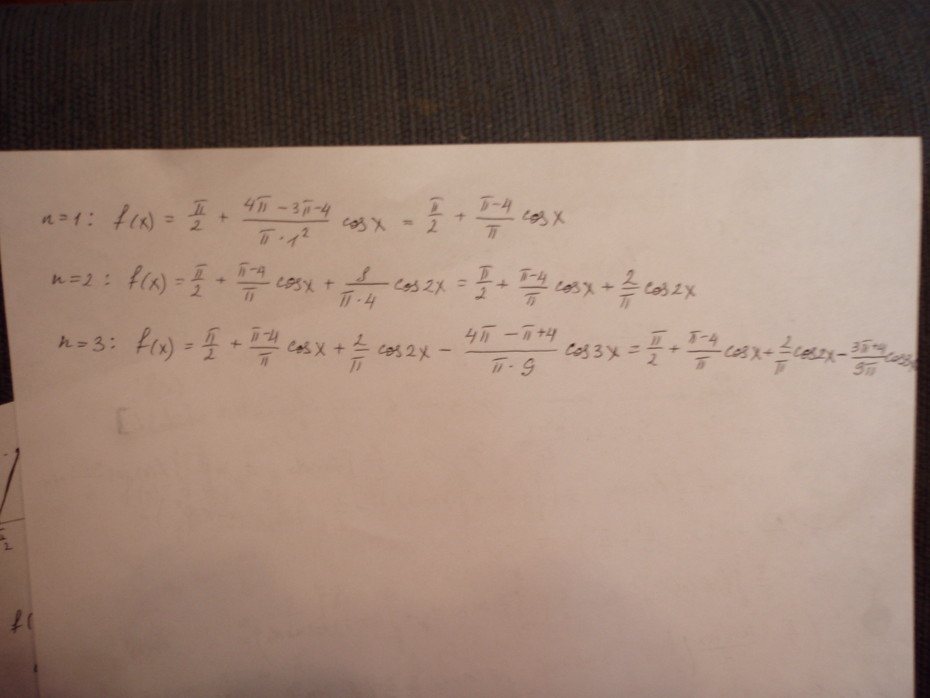 n=1: f(x) = π/2 + (4π - 3π - 4)/(π·1²) cos x = π/2 + (π-4)/π cos x
n=2: f(x) = π/2 + (π-4)/π cos x + 8/(π·4) cos 2x = π/2 + (π-4)/π cos x + 2/π cos 2x
n=3: f(x) = π/2 + (π-4)/π cos x + 2/π cos 2x - (4π - π + 4)/(π·9) cos 3x = π/2 + (π-4)/π cos x + 2/π cos 2x - (3π+4)/(9π) cos 3x
f(